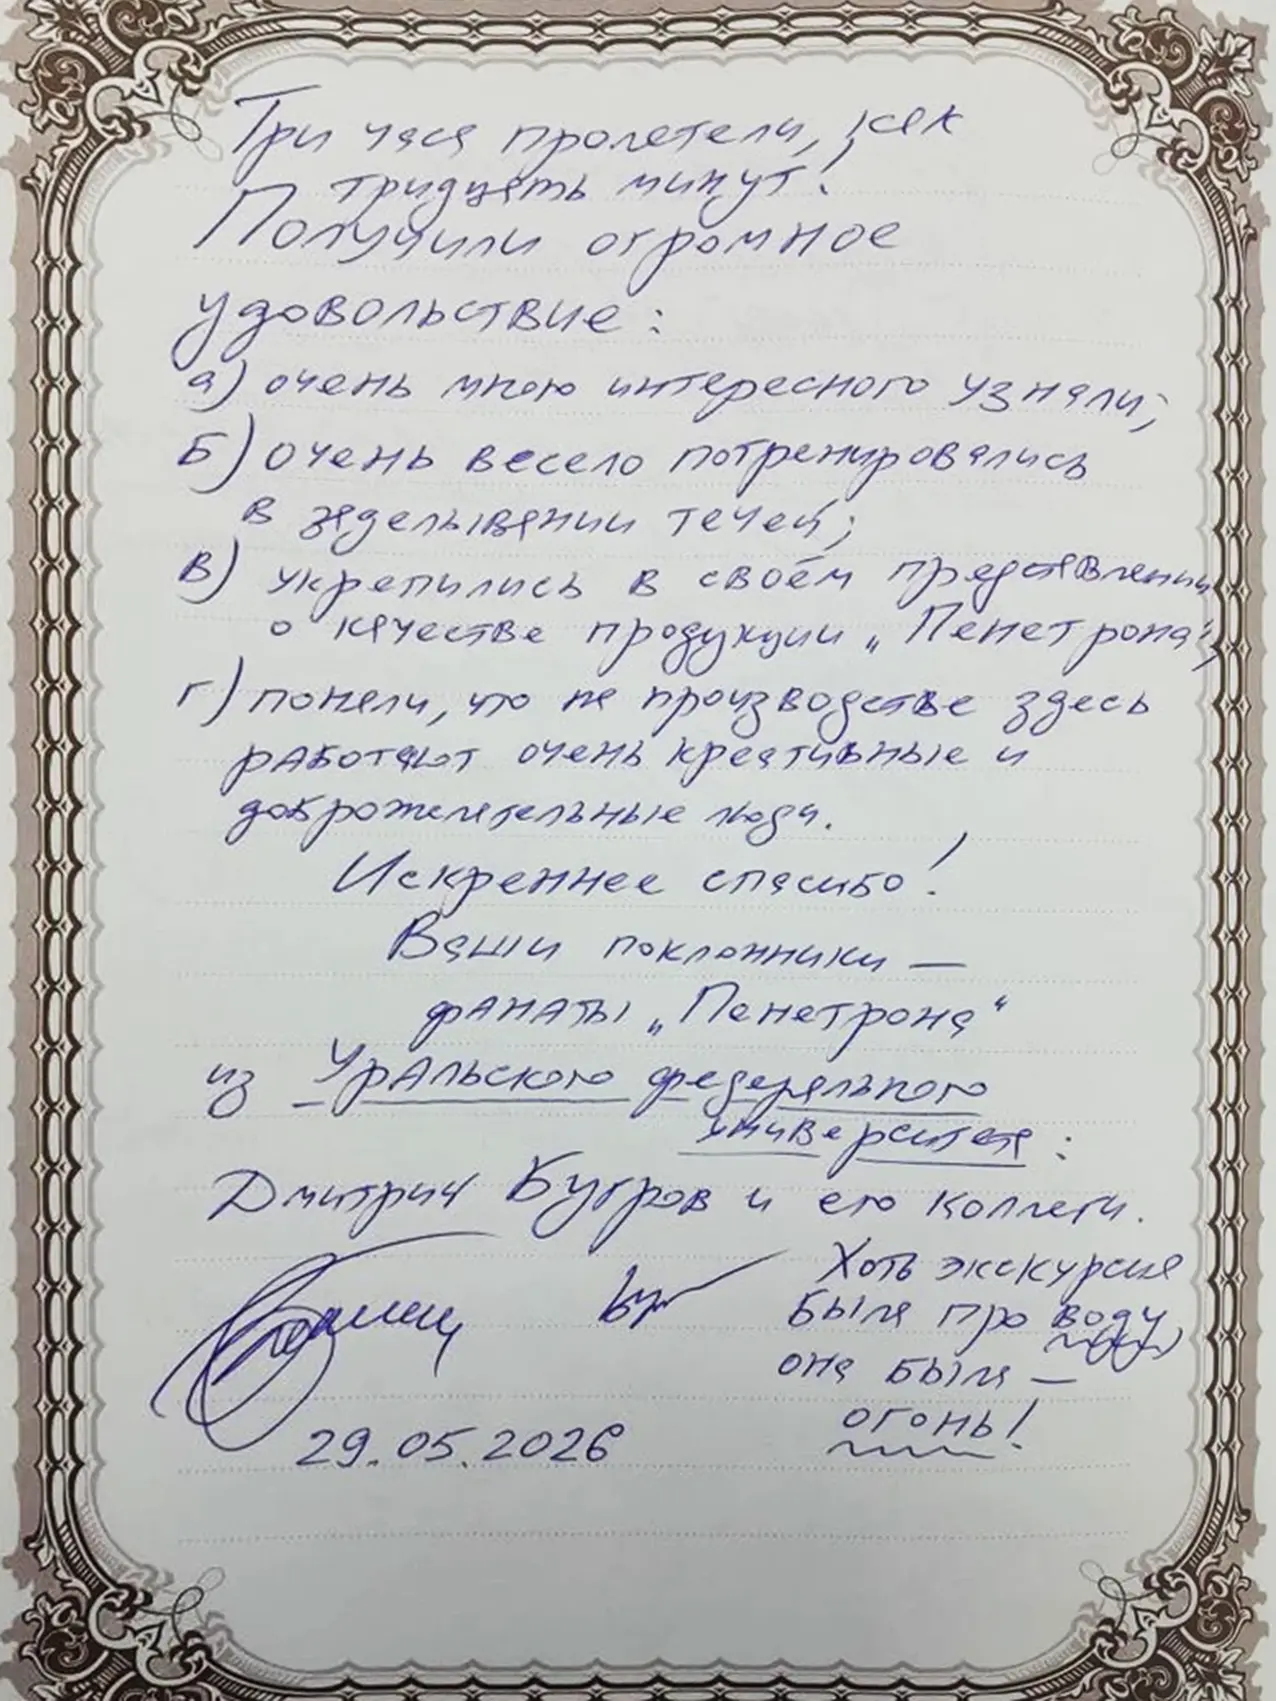 Три часа пролетели, как
тридцать минут!
Получили огромное
удовольствие:
а) очень много интересного узнали;
Б) очень весело потренировались
в заделывании течей;
В) укрепились в своём представлении
о качестве продукции „Пенетрона“;
г) поняли, что на производстве здесь
работают очень креативные и
доброжелательные люди.
Искреннее спасибо!
Ваши поклонники —
фанаты „Пенетрона“
из Уральского федерального
университета:
Дмитрий Бугров и его коллеги.
Хоть экскурсия
была про воду,
она была —
огонь!
29.05.2026